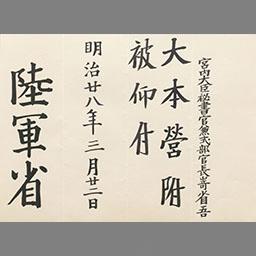 宮内大臣秘書官兼式部官長崎省吾
大本營附
被仰付
明治廿八年三月廿二日
陸軍省